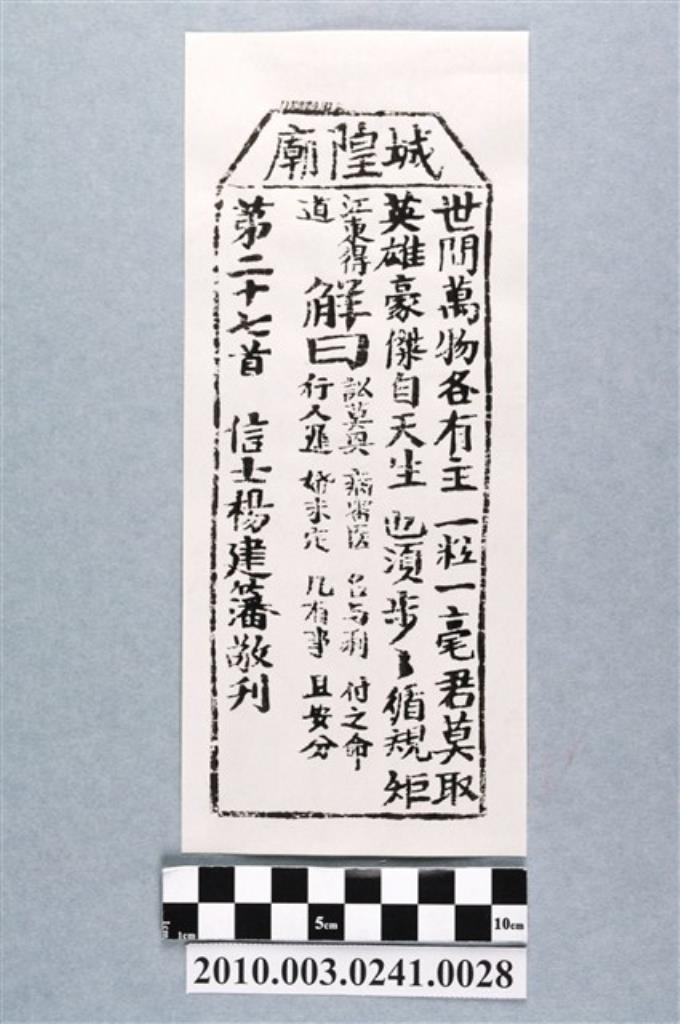 城隍廟
世間萬物各有主 一粒一毫君莫取
英雄豪傑自天生 也須步々循規矩
江東得
道
解曰
訟莫興 病医 名与利 付之命
行人 婚未定 凡有事 且安分
第二十七首 信士楊建籓敬刊
1cm 5cm 10cm
2010.003.0241.0028